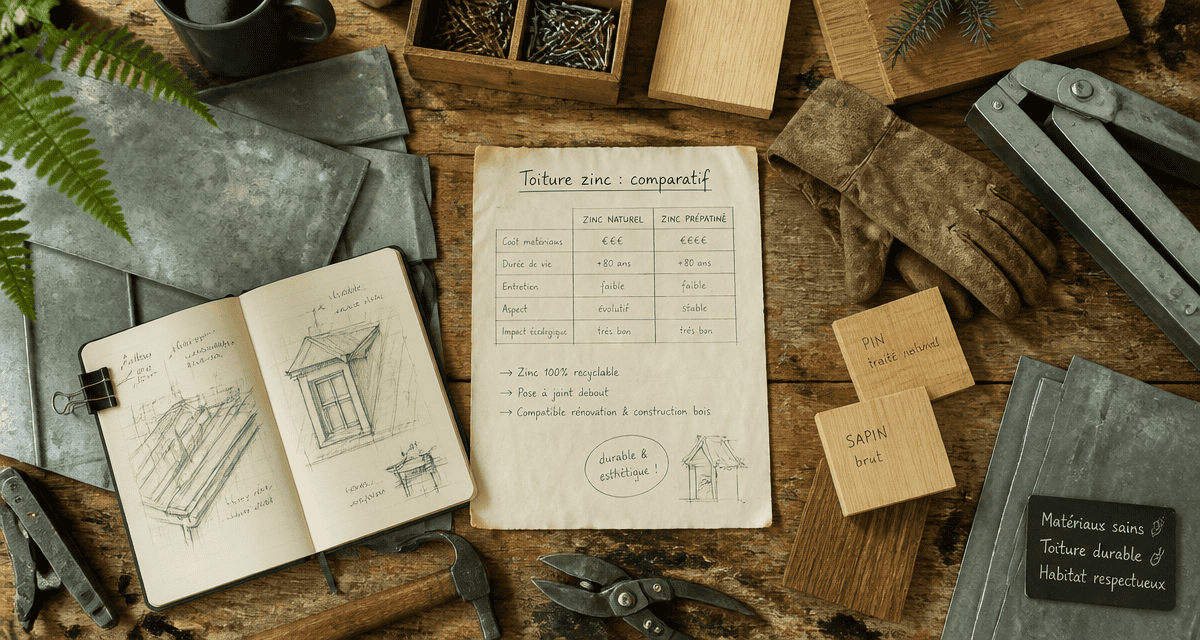 Toiture zinc : comparatif
ZINC NATUREL ZINC PRÉPATINÉ
Coût matériaux €€€ €€€€
Durée de vie +80 ans +80 ans
Entretien faible faible
Aspect évolutif stable
Impact écologique très bon très bon
→ Zinc 100% recyclable
→ Pose à joint debout
→ Compatible rénovation & construction bois
durable &
esthétique !
PIN
traité naturel
SAPIN
brut
Matériaux sains
Toiture durable
Habitat respectueux